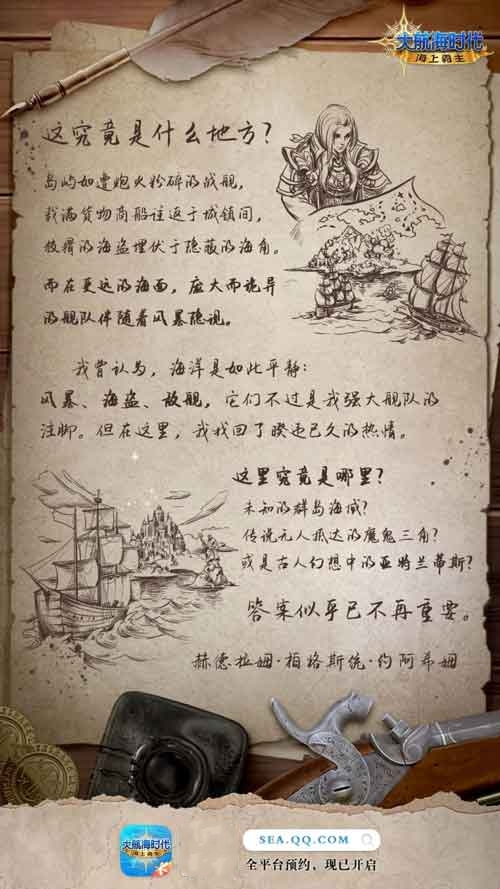 大航海时代
海上霸主
这究竟是什么地方?
岛屿如遭炮火粉碎的战舰,
载满货物商船往返于城镇间,
狡猾的海盗埋伏于隐蔽的海角。
而在更远的海面,庞大而诡异
的舰队伴随着风暴隐现。
我曾认为,海洋是如此平静:
风暴、海盗、敌舰,它们不过是我强大舰队的
注脚。但在这里,我找回了暌违已久的热情。
这里究竟是哪里?
未知的群岛海域?
传说无人抵达的魔鬼三角?
或是古人幻想中的亚特兰蒂斯?
答案似乎已不再重要。
赫德拉姆·柏格斯统·约阿希姆
大航海时代
SEA.QQ.COM
全平台预约,现已开启